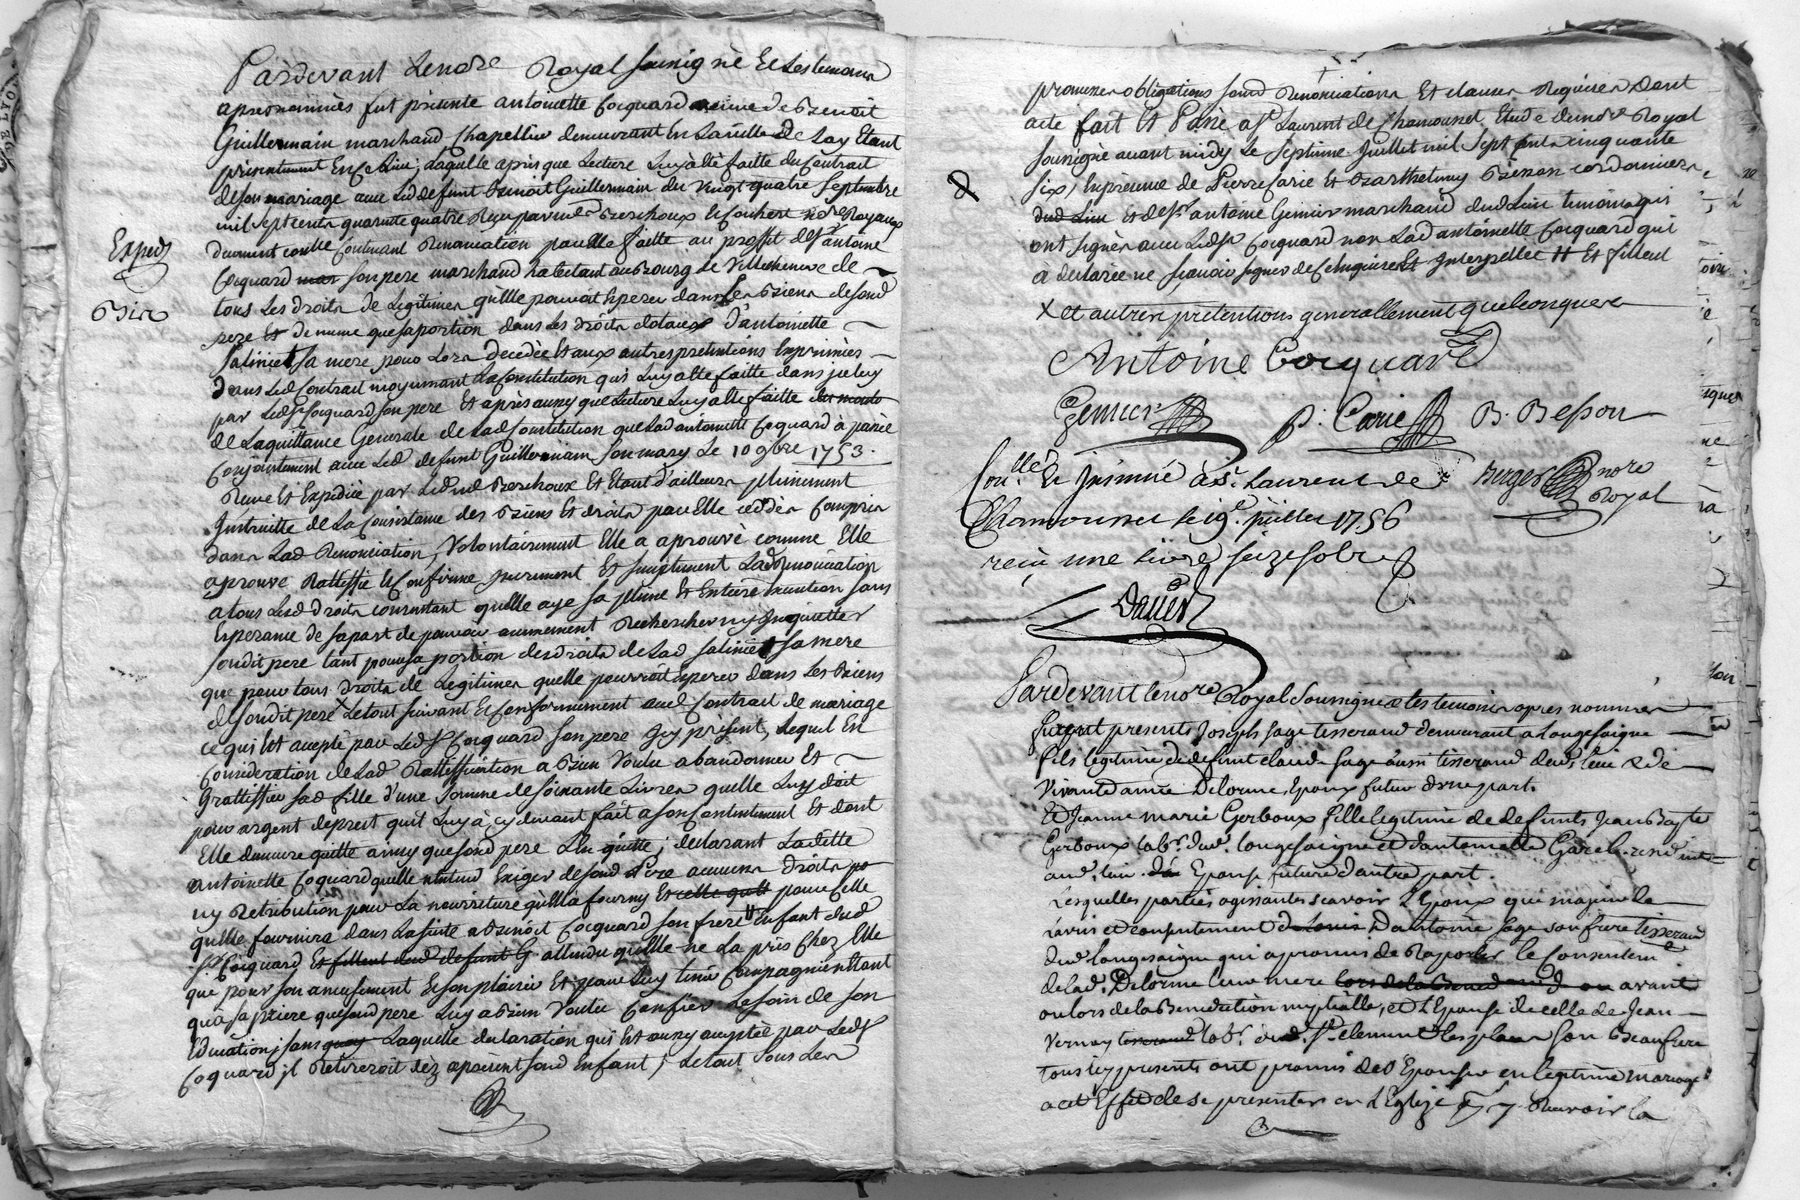 Pardevant Lenore Royal soussigné Et Les temoins
apresnommés fut présente antoinette Cocquard veuve de Benoit
Guillermain marchand Chapellier demeurant En la ville de Lay Etant
présentement En ce Lieu, laquelle après que Lecture Luy a été faitte du Contrat
de son mariage avec Led defunt Benoit Guillermain du vingt quatre Septembre
mil sept cents quarante quatre Reçu par me Berchoux et Nores Royaux
duement contenant Renonciation par elle faitte au proffit de Sr antoine
Cocquard son pere marchand habitant au Bourg de Villecheneve de
tous Les droits de Legitimes qu'elle pouvoit Esperer dans Les Biens de sond
pere Et de meme que sa portion dans Les droits dotaux d'antoinette
Saliniet sa mere pour Lors decedée Et aux autres pretentions Exprimées
dans Led Contrat moyennant La Constitution qui Luy a été faitte dans iceluy
par Led Sr Cocquard son pere Et après aussy que Lecture Luy a été faitte
de La quittance Generale de Lad Constitution que Lad antoinette Cocquard à passée
Conjointement avec Led defunt Guillermain son mary Le 10 9bre 1753.
Reçue Et Expediée par Led me Berchoux Et Etant d'ailleurs pleinement
Instruitte de La Consistance des Biens Et droits par Elle cédés Compris
dans Lad Renonciation, Volontairement Elle a aprouvé comme Elle
aprouve Rattiffie Et Confirme purement Et simplement Lad Renonciation
a tous Lesd droits consentant qu'elle aye sa pleine Et Entiere Execution sans
Esperance de sa part de pouvoir aucunement Rechercher ny Inquietter
sondit pere tant pour sa portion des droits de Lad Saliniet sa mere
que pour tous droits de Legitimes qu'elle pourroit esperer dans Les Biens
de sondit pere Le tout suivant Et Conformement aud Contrat de mariage
ce qui Est accepté par Led Sr Cocquard son pere Icy présent, Lequel En
Consideration de Lad Rattiffication a Bien Voulu abandonner Et
Grattiffier sad fille d'une somme de soixante Livres qu'elle Luy doit
pour argent de prest qu'il Luy a cy devant fait a son Contentement Et dont
Elle demeure quitte ainsy que sond pere L'en quitte; declarant Laditte
antoinette Cocquard qu'elle n'entend Exiger de sond Pere aucuns droits
ny Retribution pour La nourriture qu'ell'a fourny Et celle qu'el pour celle
qu'elle fournira dans La suite a Benoit Cocquard son frere H Enfant dud
Sr Cocquard Et filleul dud defunt G attendu qu'elle ne La pris Chez Elle
que pour son amusement Et son plaisir Et pour Luy tenir Compagnie n'Etant
qu'a sa priere que sond pere Luy a Bien Voulu Confier Le soin de son
Education; sans Laquelle declaration qui Est aussy acceptée par Led Sr
Cocquard il Retireroit dèz apresent sond Enfant; Le tout sous Les
Exped
promesses obligations soumd Renonciations Et clauses Requises Dont
acte fait Et Passé a St Laurent de Chamousset Etude du nore Royal
soussigné avant midy Le septieme Juillet mil sept cents cinquante
six, En présence de Pierre Carie Et Barthelemy Besson cordonniers
dud Lieu et de Sr antoine Gemier marchand dud Lieu temoins qui
ont signés avec Led Sr Cocquard non Lad antoinette Cocquard qui
a declarée ne sçavoir signer de ce Enquise et Interpellée H Et filleul
X et autres pretentions generallement quelconques
Antoine Cocquard
Gemier P. Carie B. Besson
Berger nore Royal
Conllé Et Insinué à St. Laurent de
Chamousset le 19e. juillet 1756
reçu une livre seize sols
Pardevant le nore Royal soussigné et les temoins apres nommés
furent presents Joseph sage tisserand demeurant a Longesaigne
fils legitime de defunt claude sage aussi tisserand dud. lieu & de
vivante aimée Delorme, Epoux futur d'une part.
Et Jeanne marie Gerboux fille legitime de defunts Jean Bapte
Gerboux labr. dud. longesaigne et d'antoinette Garel. residente
aud. lieu. Epouse future d'autre part.
Lesquelles parties agissantes scavoir L'Epoux que majeur de
l'avis et consentement D'antoine sage son frere tisserand
dud longesaigne qui a promis de Raporter le Consentem
de lad. Delorme leur mere avant
ou lors de la Benediction nuptialle, et L'Epouse de celle de Jean
Vernay labr. dud. St. Clement les places son Beaufrere
tous icy presents ont promis de s'Epouser en legitime mariage
a cet Effet de se presenter en L'Eglize pr. y Recevoir la